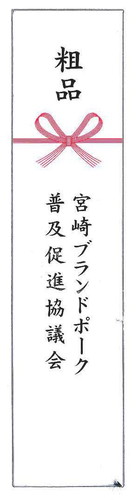 粗品
宮崎ブランドポーク
普及促進協議会